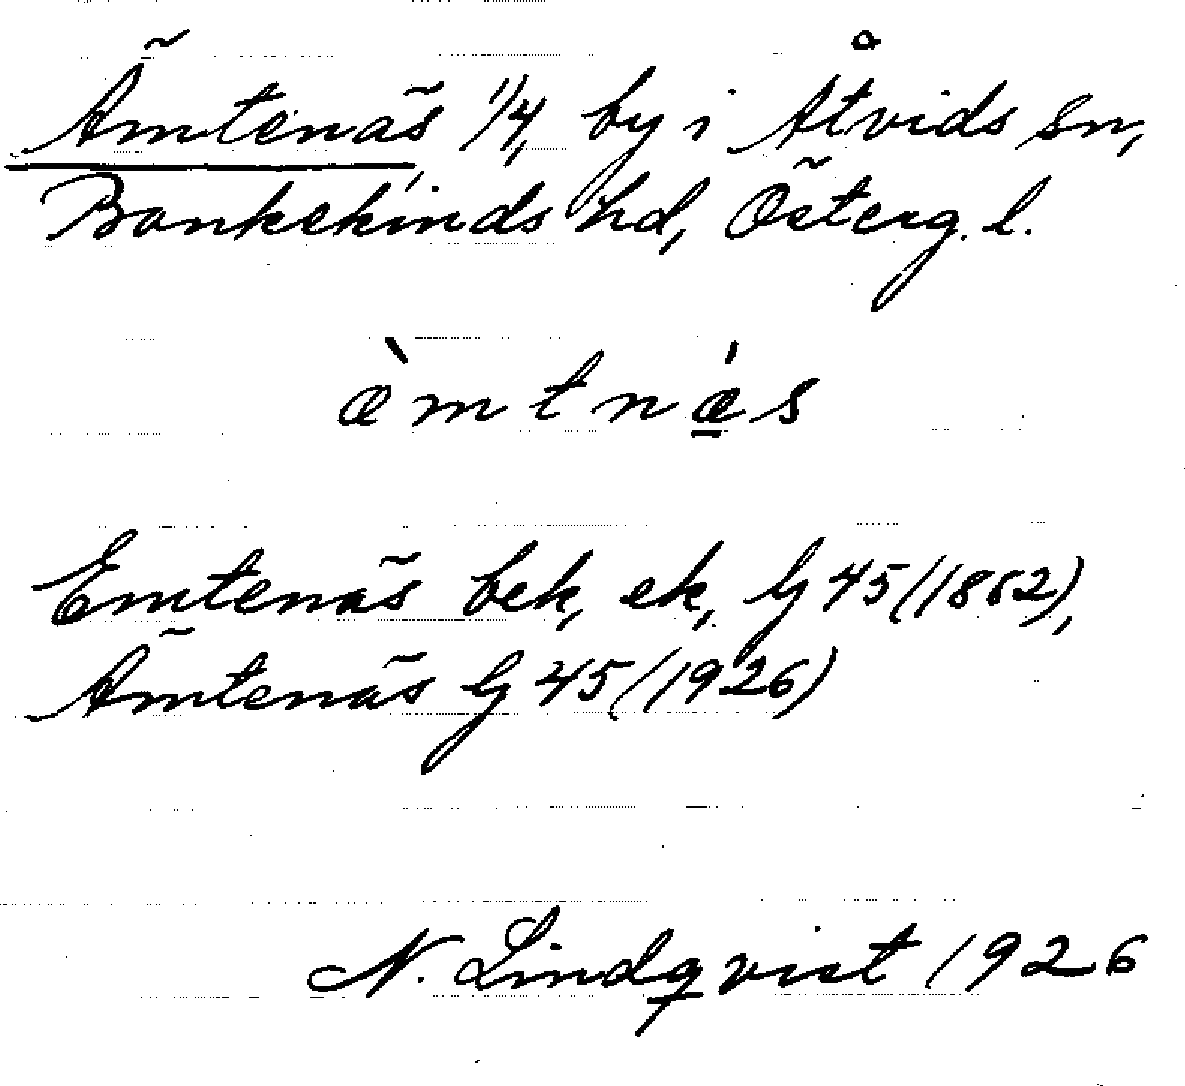 Ämtenäs 1/4, by i Åtvids sn,
Bankekinds hd, Österg. l.
æ̀mtnǽ̠s
Emtenäs bek, ek, Lj 45 (1862),
Ämtenäs Lj 45 (1926)
N. Lindqvist 1926